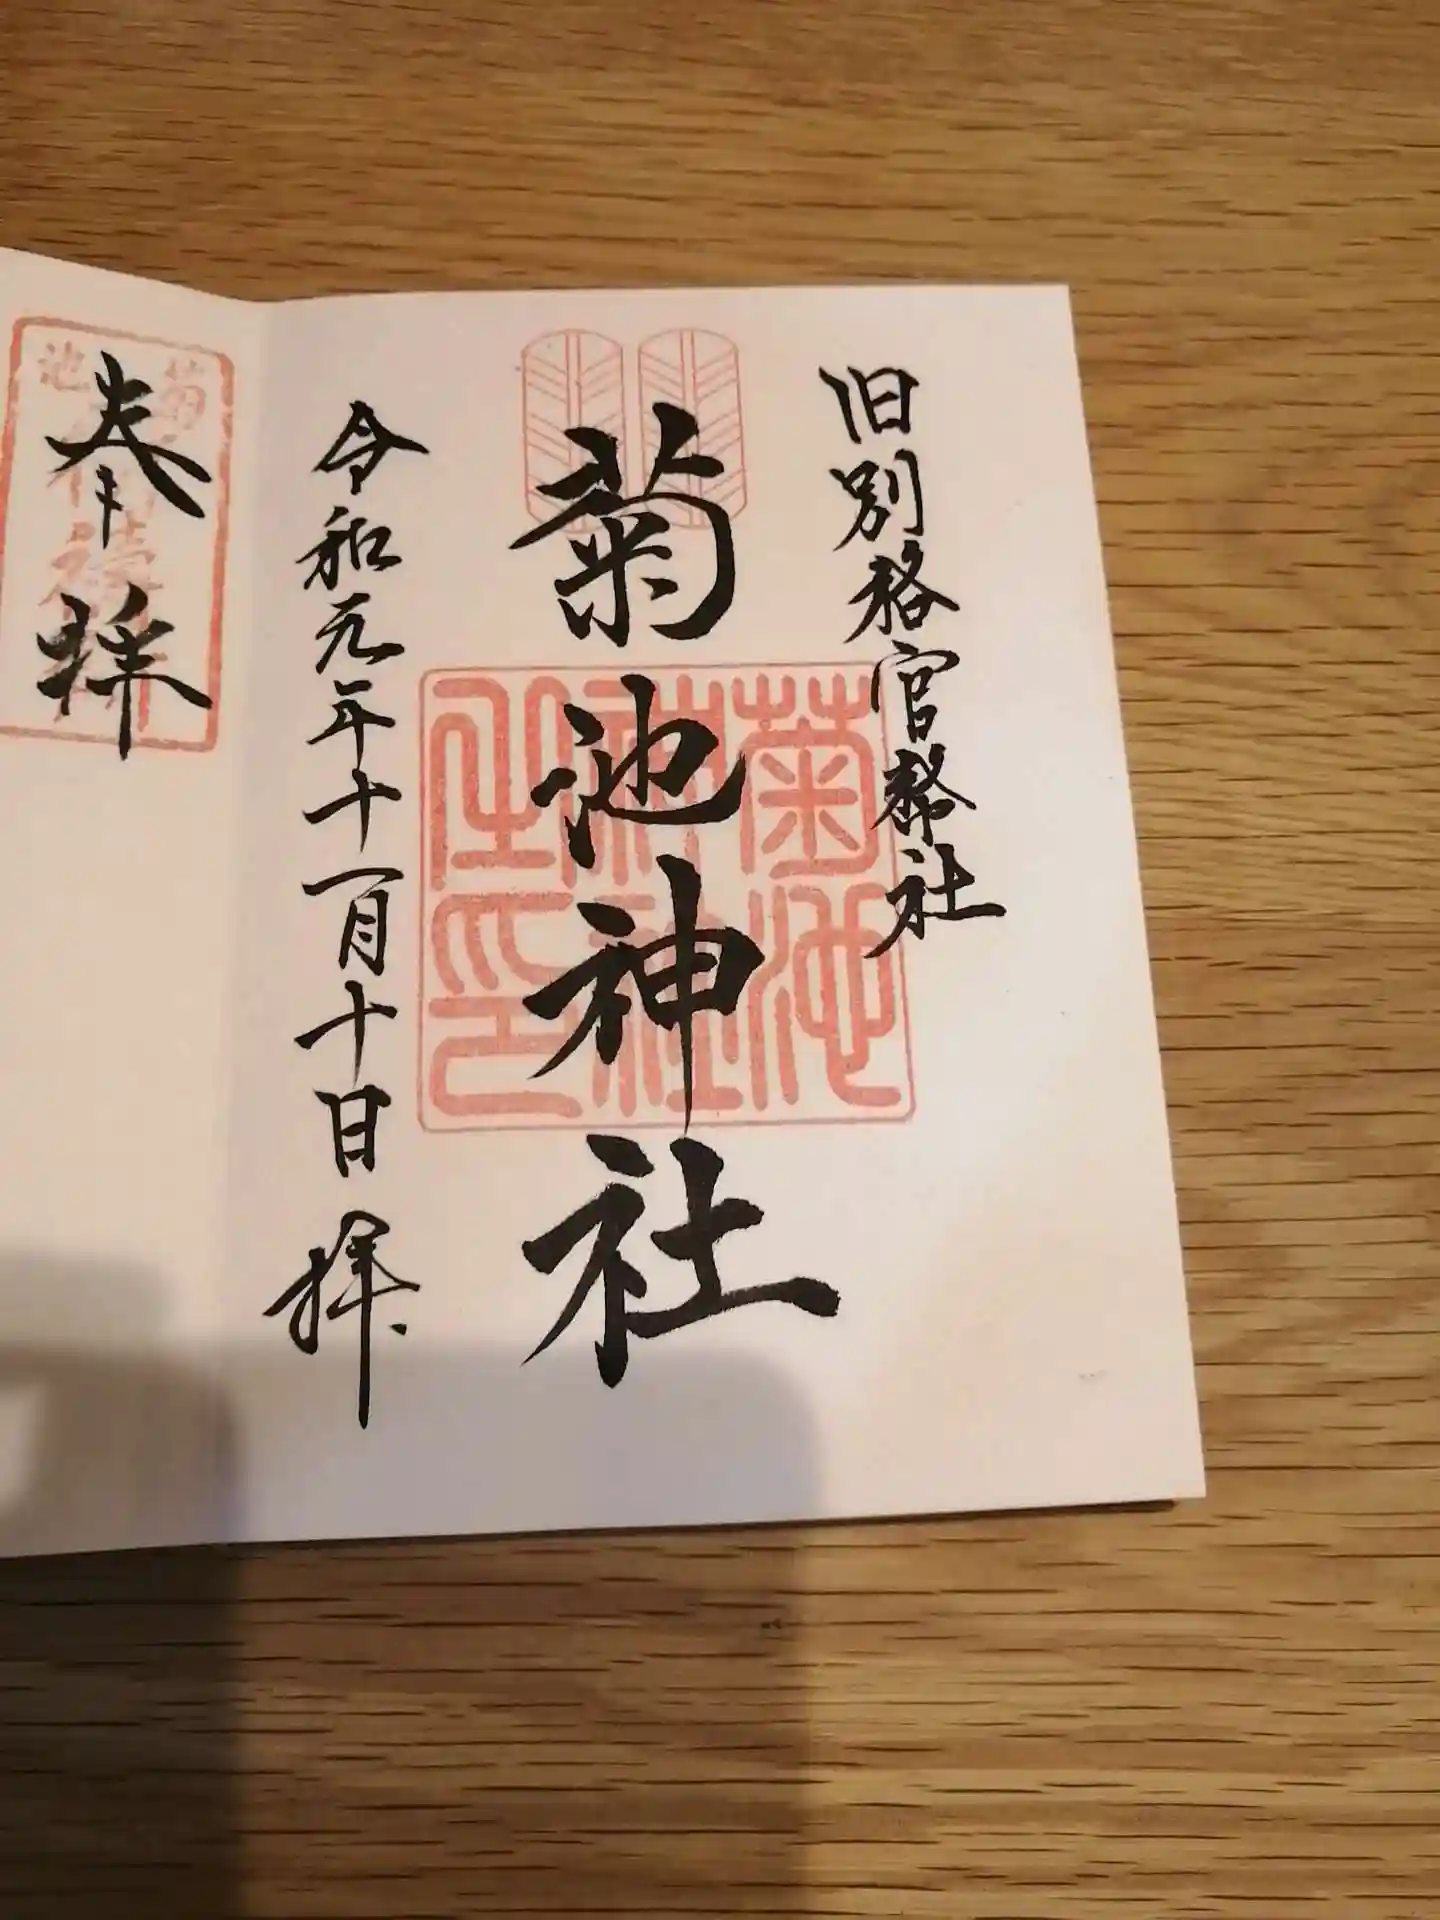 旧別格官幣社
菊池神社
菊池神社之印
令和元年十一月十日 拝
奉拝
菊池